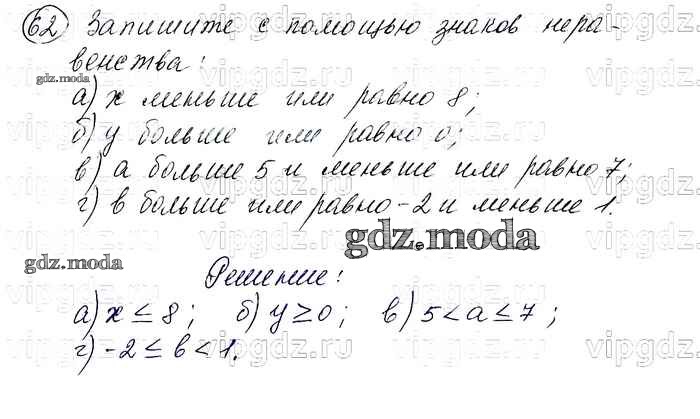 62 Запишите с помощью знаков нера-
венства:
а) x меньше или равно 8;
б) y больше или равно 0;
в) а больше 5 и меньше или равно 7;
г) в больше или равно -2 и меньше 1.
Решение:
а) x ≤ 8; б) y ≥ 0; в) 5 < a ≤ 7;
г) -2 ≤ в < 1.
gdz.moda
gdz.moda
gdz.moda
vipgdz.ru